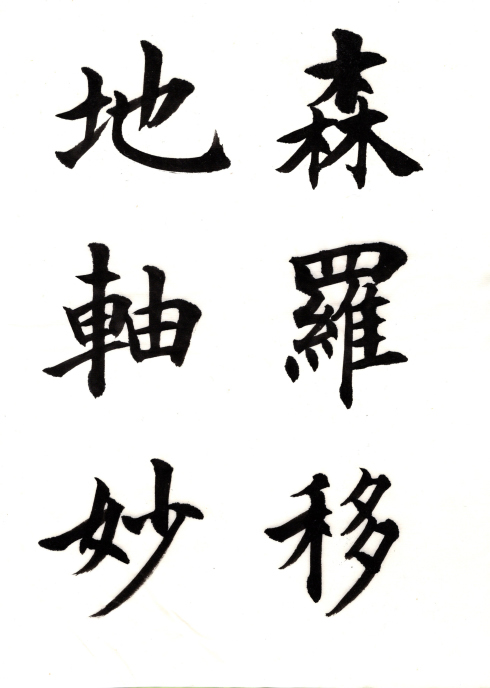 森羅移
地軸妙